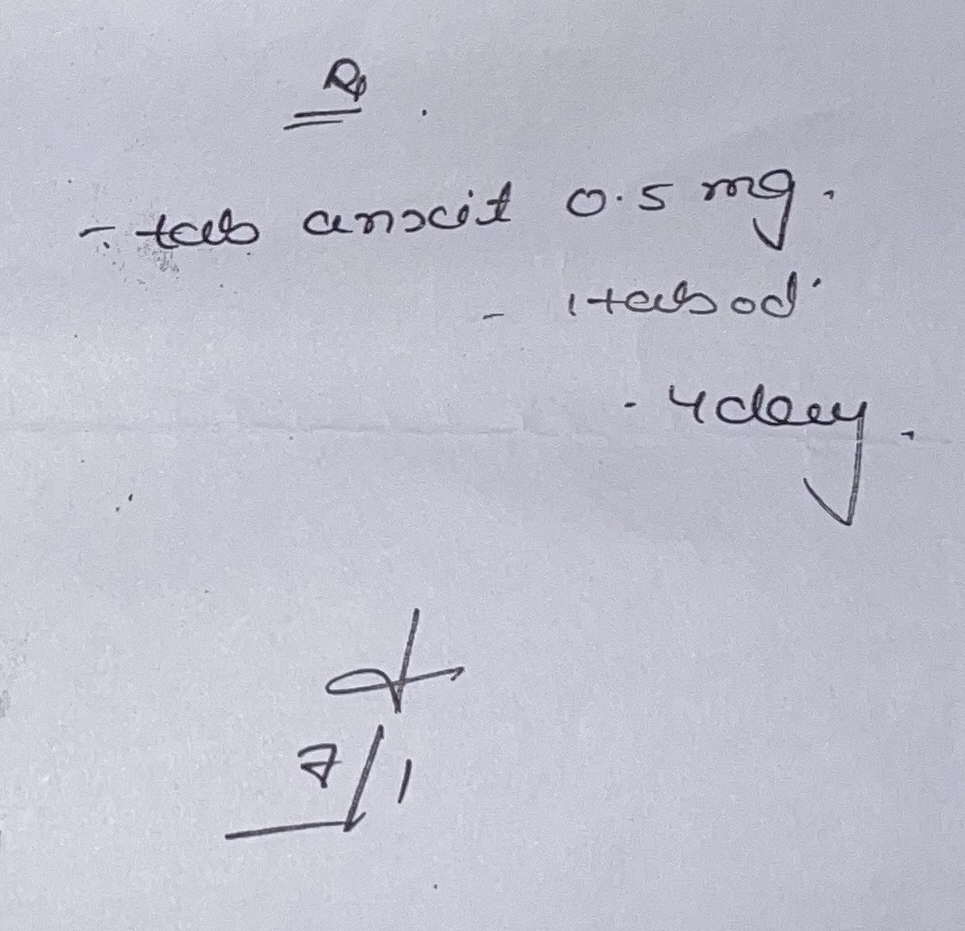 Rx.
- tab anxit 0.5 mg.
- 1 tab od
- 4 day.
7/1